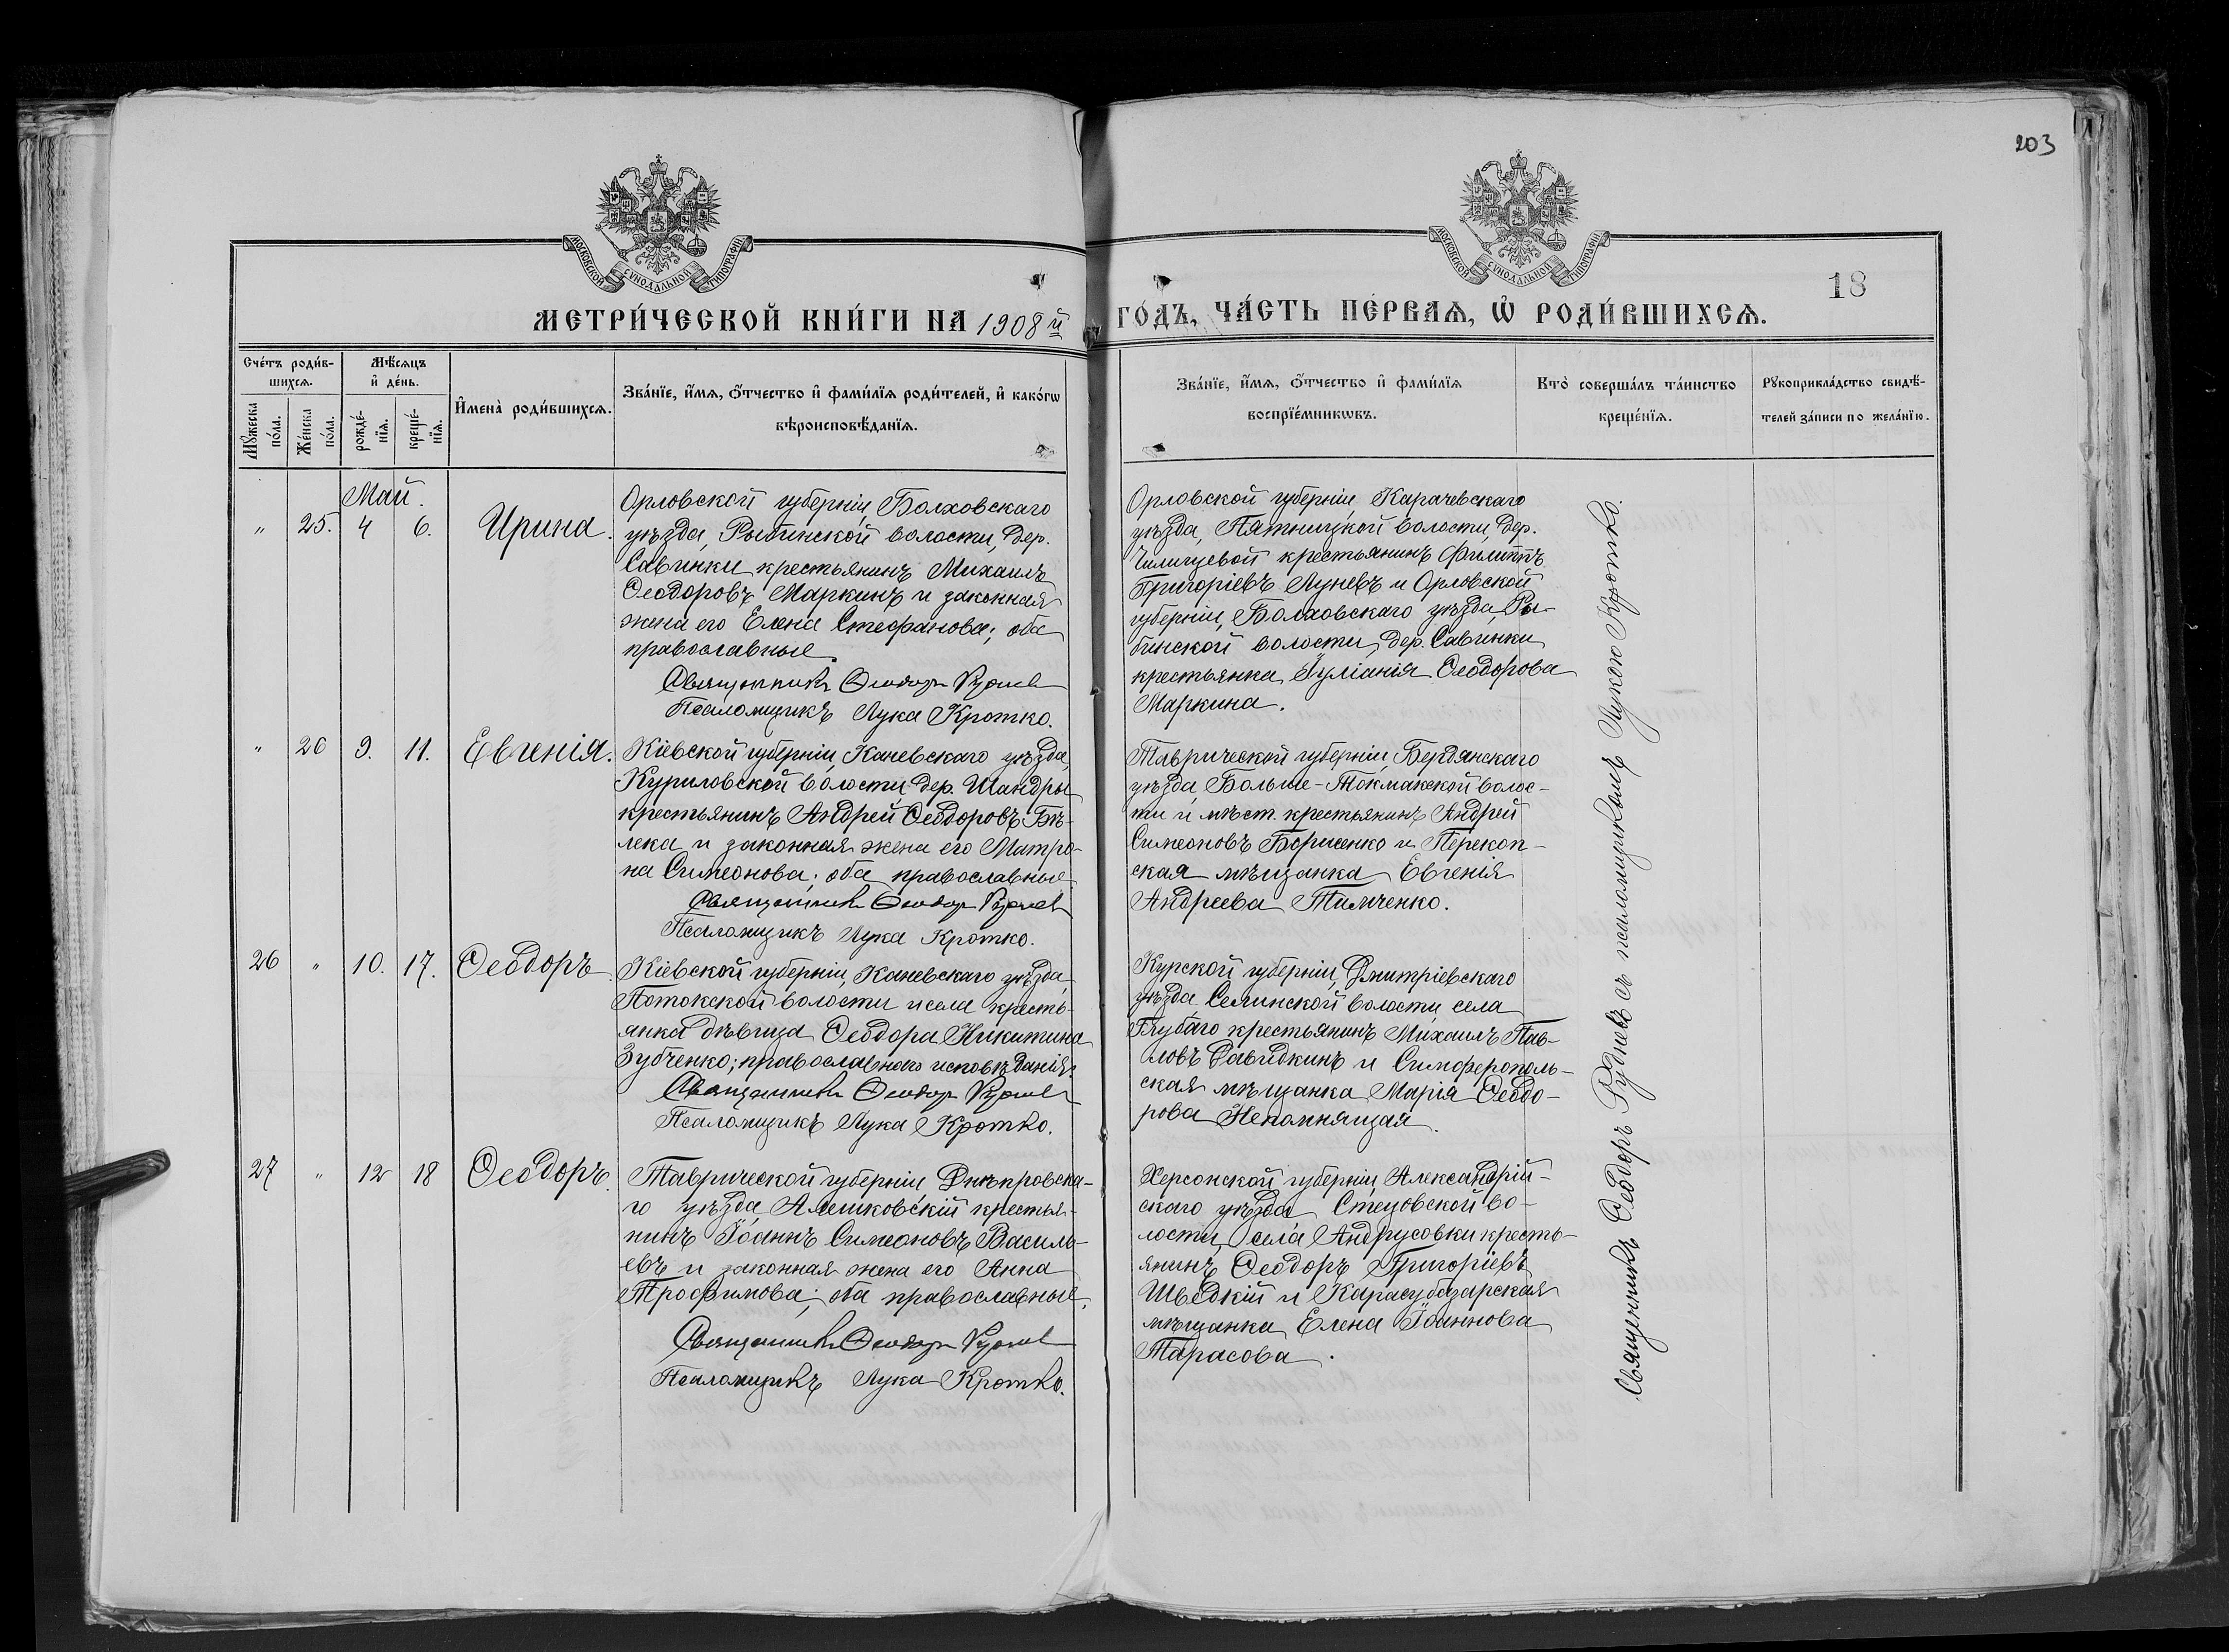 203
МОСКОВСКОЙ СУНОДАЛЬНОЙ ТИПОГРАФІИ
МОСКОВСКОЙ СУНОДАЛЬНОЙ ТИПОГРАФІИ
18
МЕТРИ́ЧЕСКОЙ КНИ́ГИ НА 1908 й
ГО́ДЪ, ЧА́СТЬ ПЕ́РВАѦ, Ѡ҆ РОДИ́ВШИХСѦ.
Сче́тъ роди́в-
шихсѧ.
Мꙋ́жеска по́ла.
Же́нска по́ла.
Мѣ́сѧцъ
и҆ де́нь.
рожде́-
нїѧ.
креще́-
нїѧ.
И҆мена̀ роди́вшихсѧ.
Зва́нїе, и҆́мѧ, ѻ҆́тчество и҆ фами́лїѧ роди́телей, и҆ како́гѡ
вѣроисповѣ́данїѧ.
Зва́нїе, и҆́мѧ, ѻ҆́тчество и҆ фами́лїѧ
воспрїе́мникѡвъ.
Кто̀ соверша́лъ та́инство
креще́нїѧ.
Рꙋкоприкла́дство свидѣ́-
телей за́писи по жела́нїю.
Май.
" 25. 4 6. Ирина.
Орловской губерніи, Болховскаго
уѣзда, Рыбинской волости, дер.
Савинки крестьянинъ Михаилъ
Ѳеодоровъ Маркинъ и законная
жена его Елена Стефанова; оба
православные.
Священникъ Ѳеодоръ Руднев
Псаломщикъ Лука Кротко.
Орловской губерніи, Карачевскаго
уѣзда, Пятницкой волости, дер.
крестьянинъ Филиппъ
Григоріевъ Луневъ и Орловской
губерніи, Болховскаго уѣзда, Ры-
бинской волости, дер. Савинки
крестьянка Іуліанія Ѳеодорова
Маркина.
" 26 9. 11. Евгенія.
Кіевской губерніи, Каневскаго уѣзда,
Куриловской волости, дер. Шандры
крестьянинъ Андрей Ѳеодоровъ Бѣ-
лека и законная жена его Матро-
на Симеонова; оба православные.
Священникъ Ѳеодоръ Руднев
Псаломщикъ Лука Кротко.
Таврической губерніи, Бердянскаго
уѣзда, Больше-Токмакской волос-
ти и мѣст. крестьянинъ Андрей
Симеоновъ Борисенко и Перекоп-
ская мѣщанка Евгенія
Андреева Тимченко.
26 " 10. 17. Ѳеодоръ.
Кіевской губерніи, Каневскаго уѣзда,
Потокской волости и села кресть-
янка дѣвица Ѳеодора Никитина
Зубченко; православнаго исповѣданія.
Священникъ Ѳеодоръ Руднев
Псаломщикъ Лука Кротко.
Курской губерніи, Дмитріевскаго
уѣзда Селинской волости села
крестьянинъ Михаилъ Пав-
ловъ Давидкинъ и Симферополь-
ская мѣщанка Марія Ѳеодо-
рова Непомнящая.
27 " 12 18 Ѳеодоръ.
Таврической губерніи Днѣпровска-
го уѣзда, Алешковскій крестья-
нинъ Іоаннъ Симеоновъ Василь-
евъ и законная жена его Анна
Трофимова; оба православные.
Священникъ Ѳеодоръ Руднев
Псаломщикъ Лука Кротко.
Херсонской губерніи, Александрій-
скаго уѣзда Стецовской во-
лости, села Андрусовки кресть-
янинъ Ѳеодоръ Григоріевъ
Шведкій и Карасубазарская
мѣщанка Елена Іоаннова
Тарасова.
Священникъ Ѳеодоръ Рудневъ съ псаломщикомъ Лукою Кротко.